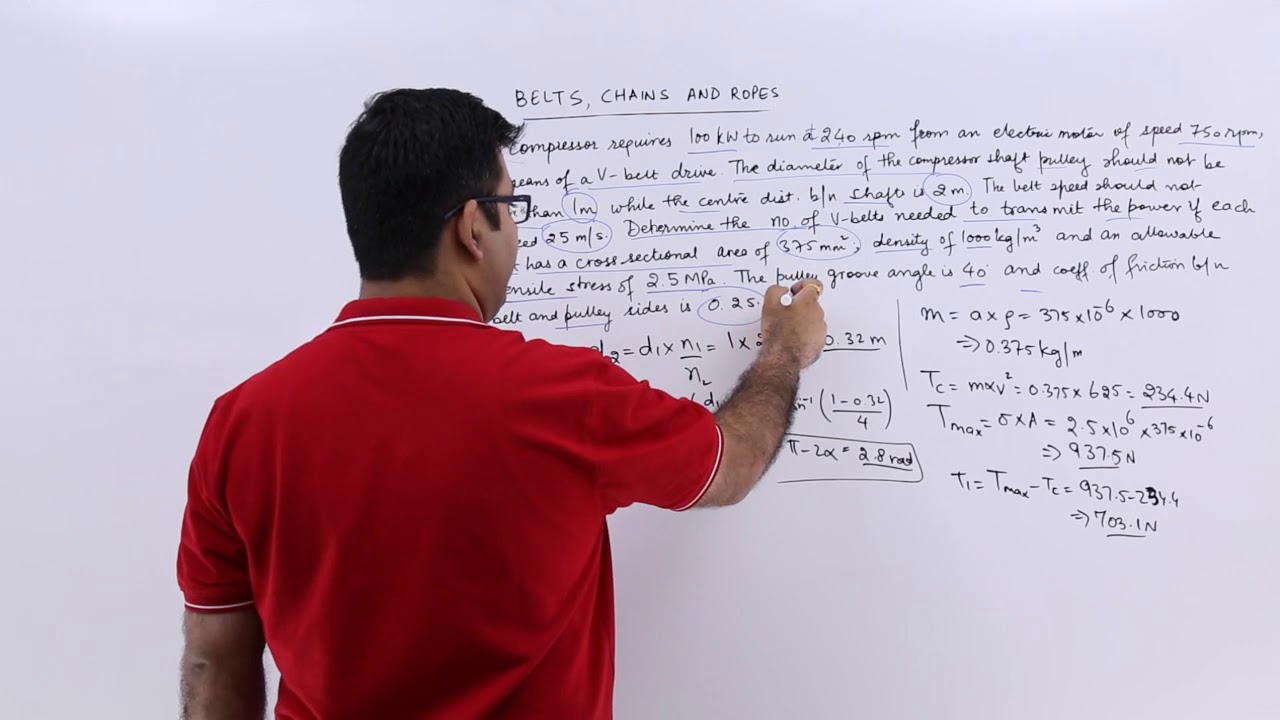 BELTS, CHAINS AND ROPES
compressor requires 100 kW to run at 240 rpm from an electric motor of speed 750 rpm,
means of a V-belt drive. The diameter of the compressor shaft pulley should not be
than 1m while the centre dist. b/n shafts is 2 m. The belt speed should not
25 m/s. Determine the no. of V-belts needed to transmit the power if each
has a cross sectional area of 375 mm², density of 1000 kg/m³ and an allowable
tensile stress of 2.5 MPa. The pulley groove angle is 40° and coeff. of friction b/n
belt and pulley sides is 0.25.
d₂ = d₁ x n₁/n₂ = 1 x 0.32 m
(1-0.32/4)
π-2α = 2.8 rad
m = a x ρ = 375 x 10⁻⁶ x 1000
⇒ 0.375 kg/m
Tc = m x v² = 0.375 x 625 = 234.4 N
Tmax = σ x A = 2.5 x 10⁶ x 375 x 10⁻⁶
⇒ 937.5 N
T₁ = Tmax - Tc = 937.5 - 234.4
⇒ 703.1 N